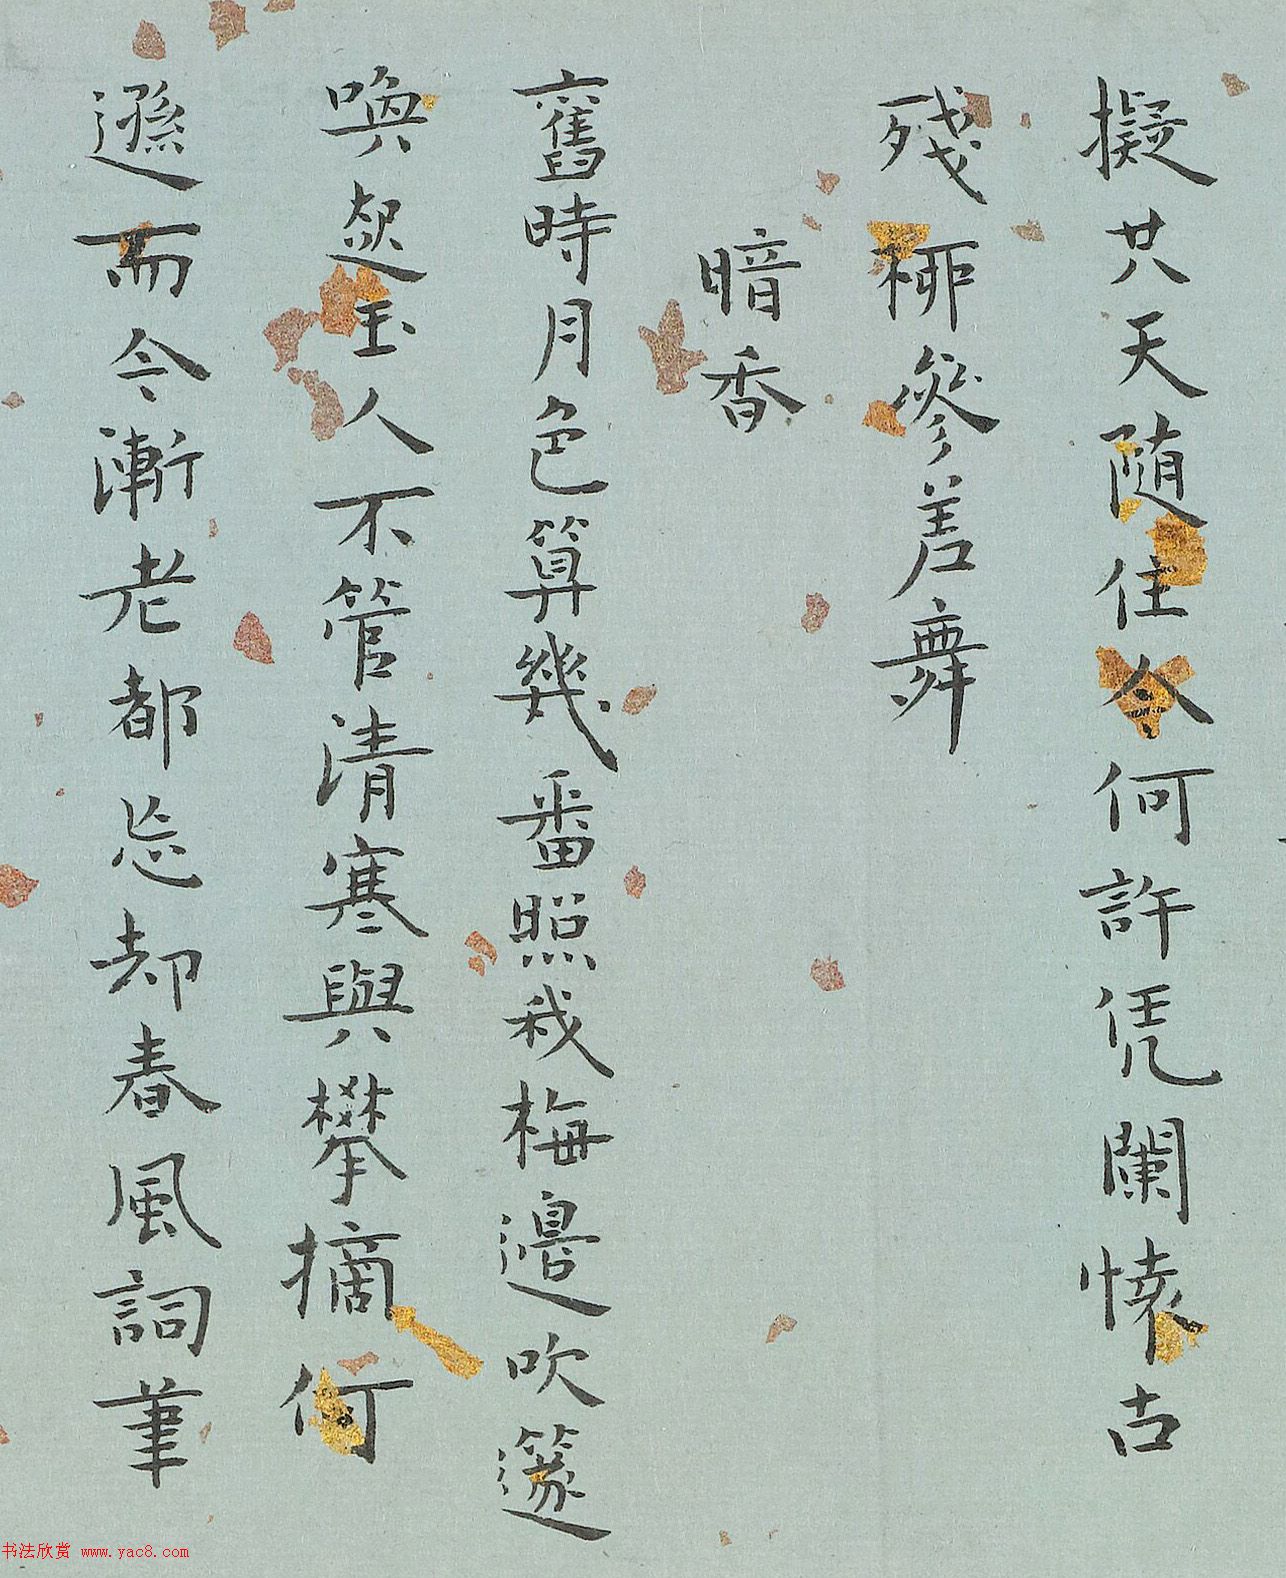 擬共天随住今何許凭闌懐古
殘桞參差舞
暗香
舊時月色算幾番照我梅邉吹篴
喚起玉人不管清寒與攀摘何
遜而今漸老都忘却春風詞筆
书法欣赏 www.yac8.com